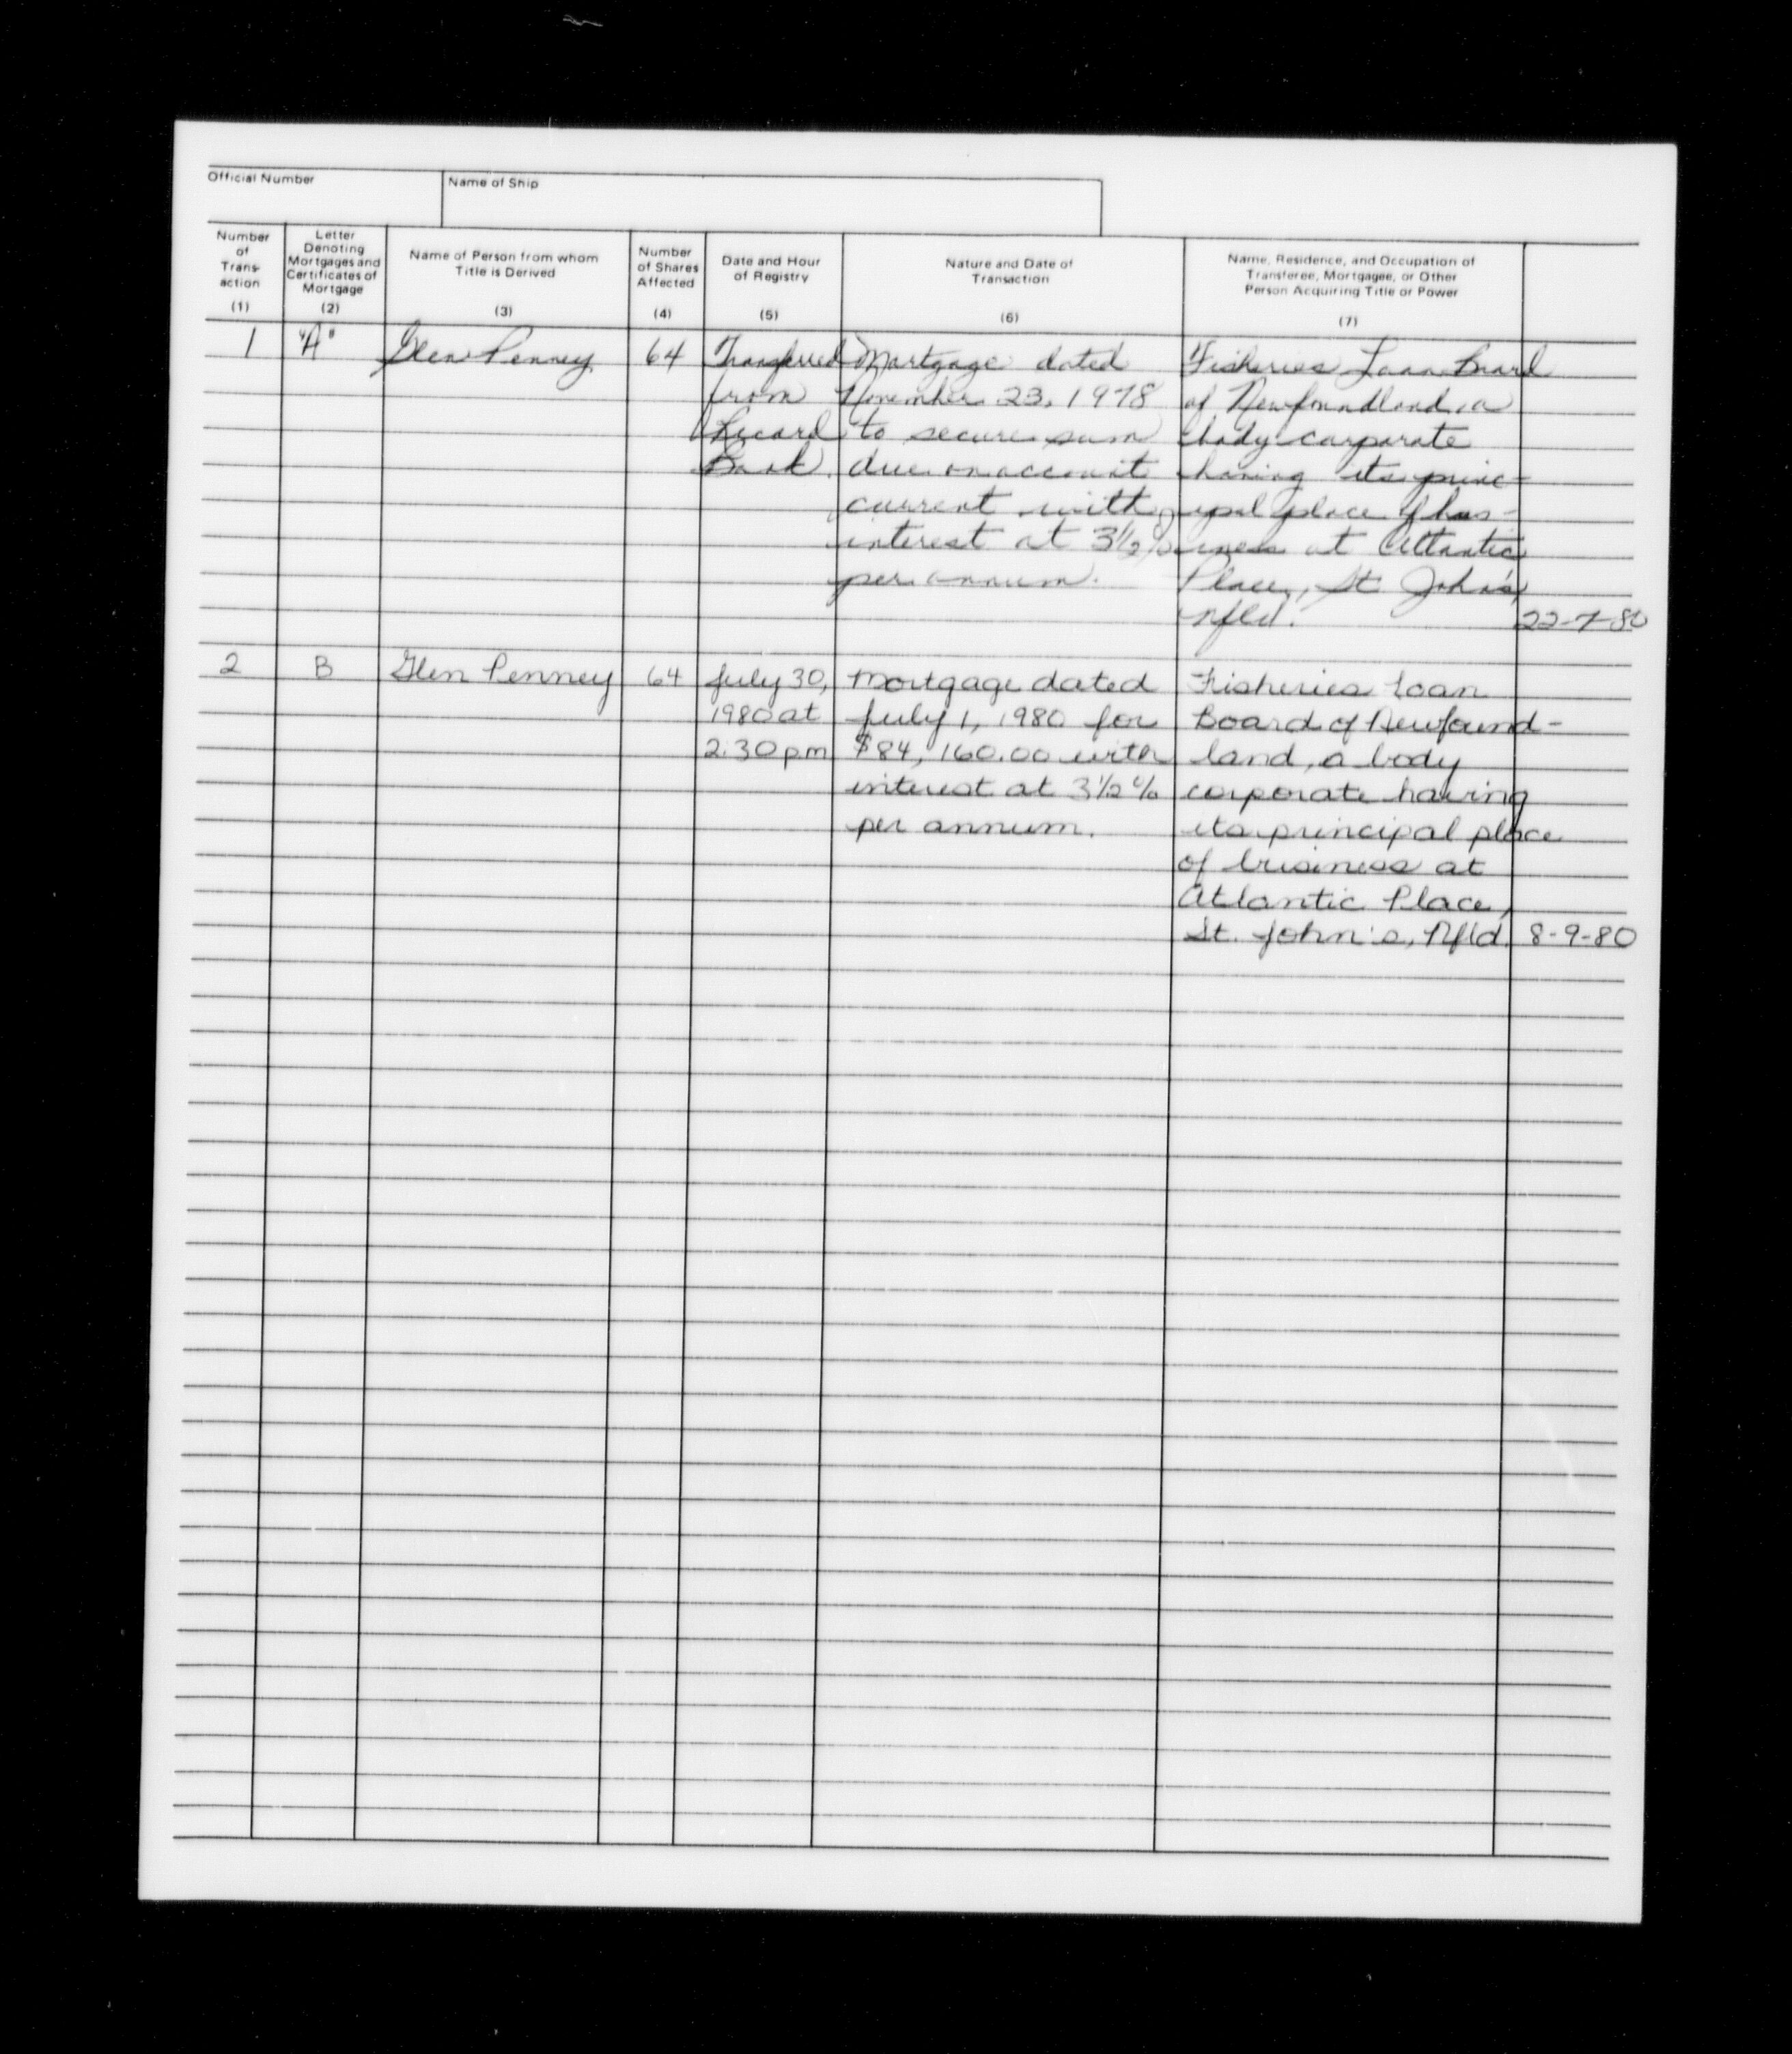 Official Number
Name of Ship
Number of Trans- action (1)
Letter Denoting Mortgages and Certificates of Mortgage (2)
Name of Person from whom Title is Derived (3)
Number of Shares Affected (4)
Date and Hour of Registry (5)
Nature and Date of Transaction (6)
Name, Residence, and Occupation of Transferee, Mortgagee, or Other Person Acquiring Title or Power (7)
1 "A" Glen Penney 64 Transferred Mortgage dated Fisheries Loan Board
from November 23, 1978 of Newfoundland, a
to secure sum body corporate
Book. due on account having its princ-
current with ipal place of bus-
interest at 3½% iness at Atlantic
per annum. Place, St. John's,
Nfld. 22-7-80
2 B Glen Penney 64 July 30, Mortgage dated Fisheries Loan
1980 at July 1, 1980 for Board of Newfound-
2:30 pm $84,160.00 with land, a body
interest at 3½% corporate having
per annum. its principal place
of business at
Atlantic Place,
St. John's, Nfld. 8-9-80